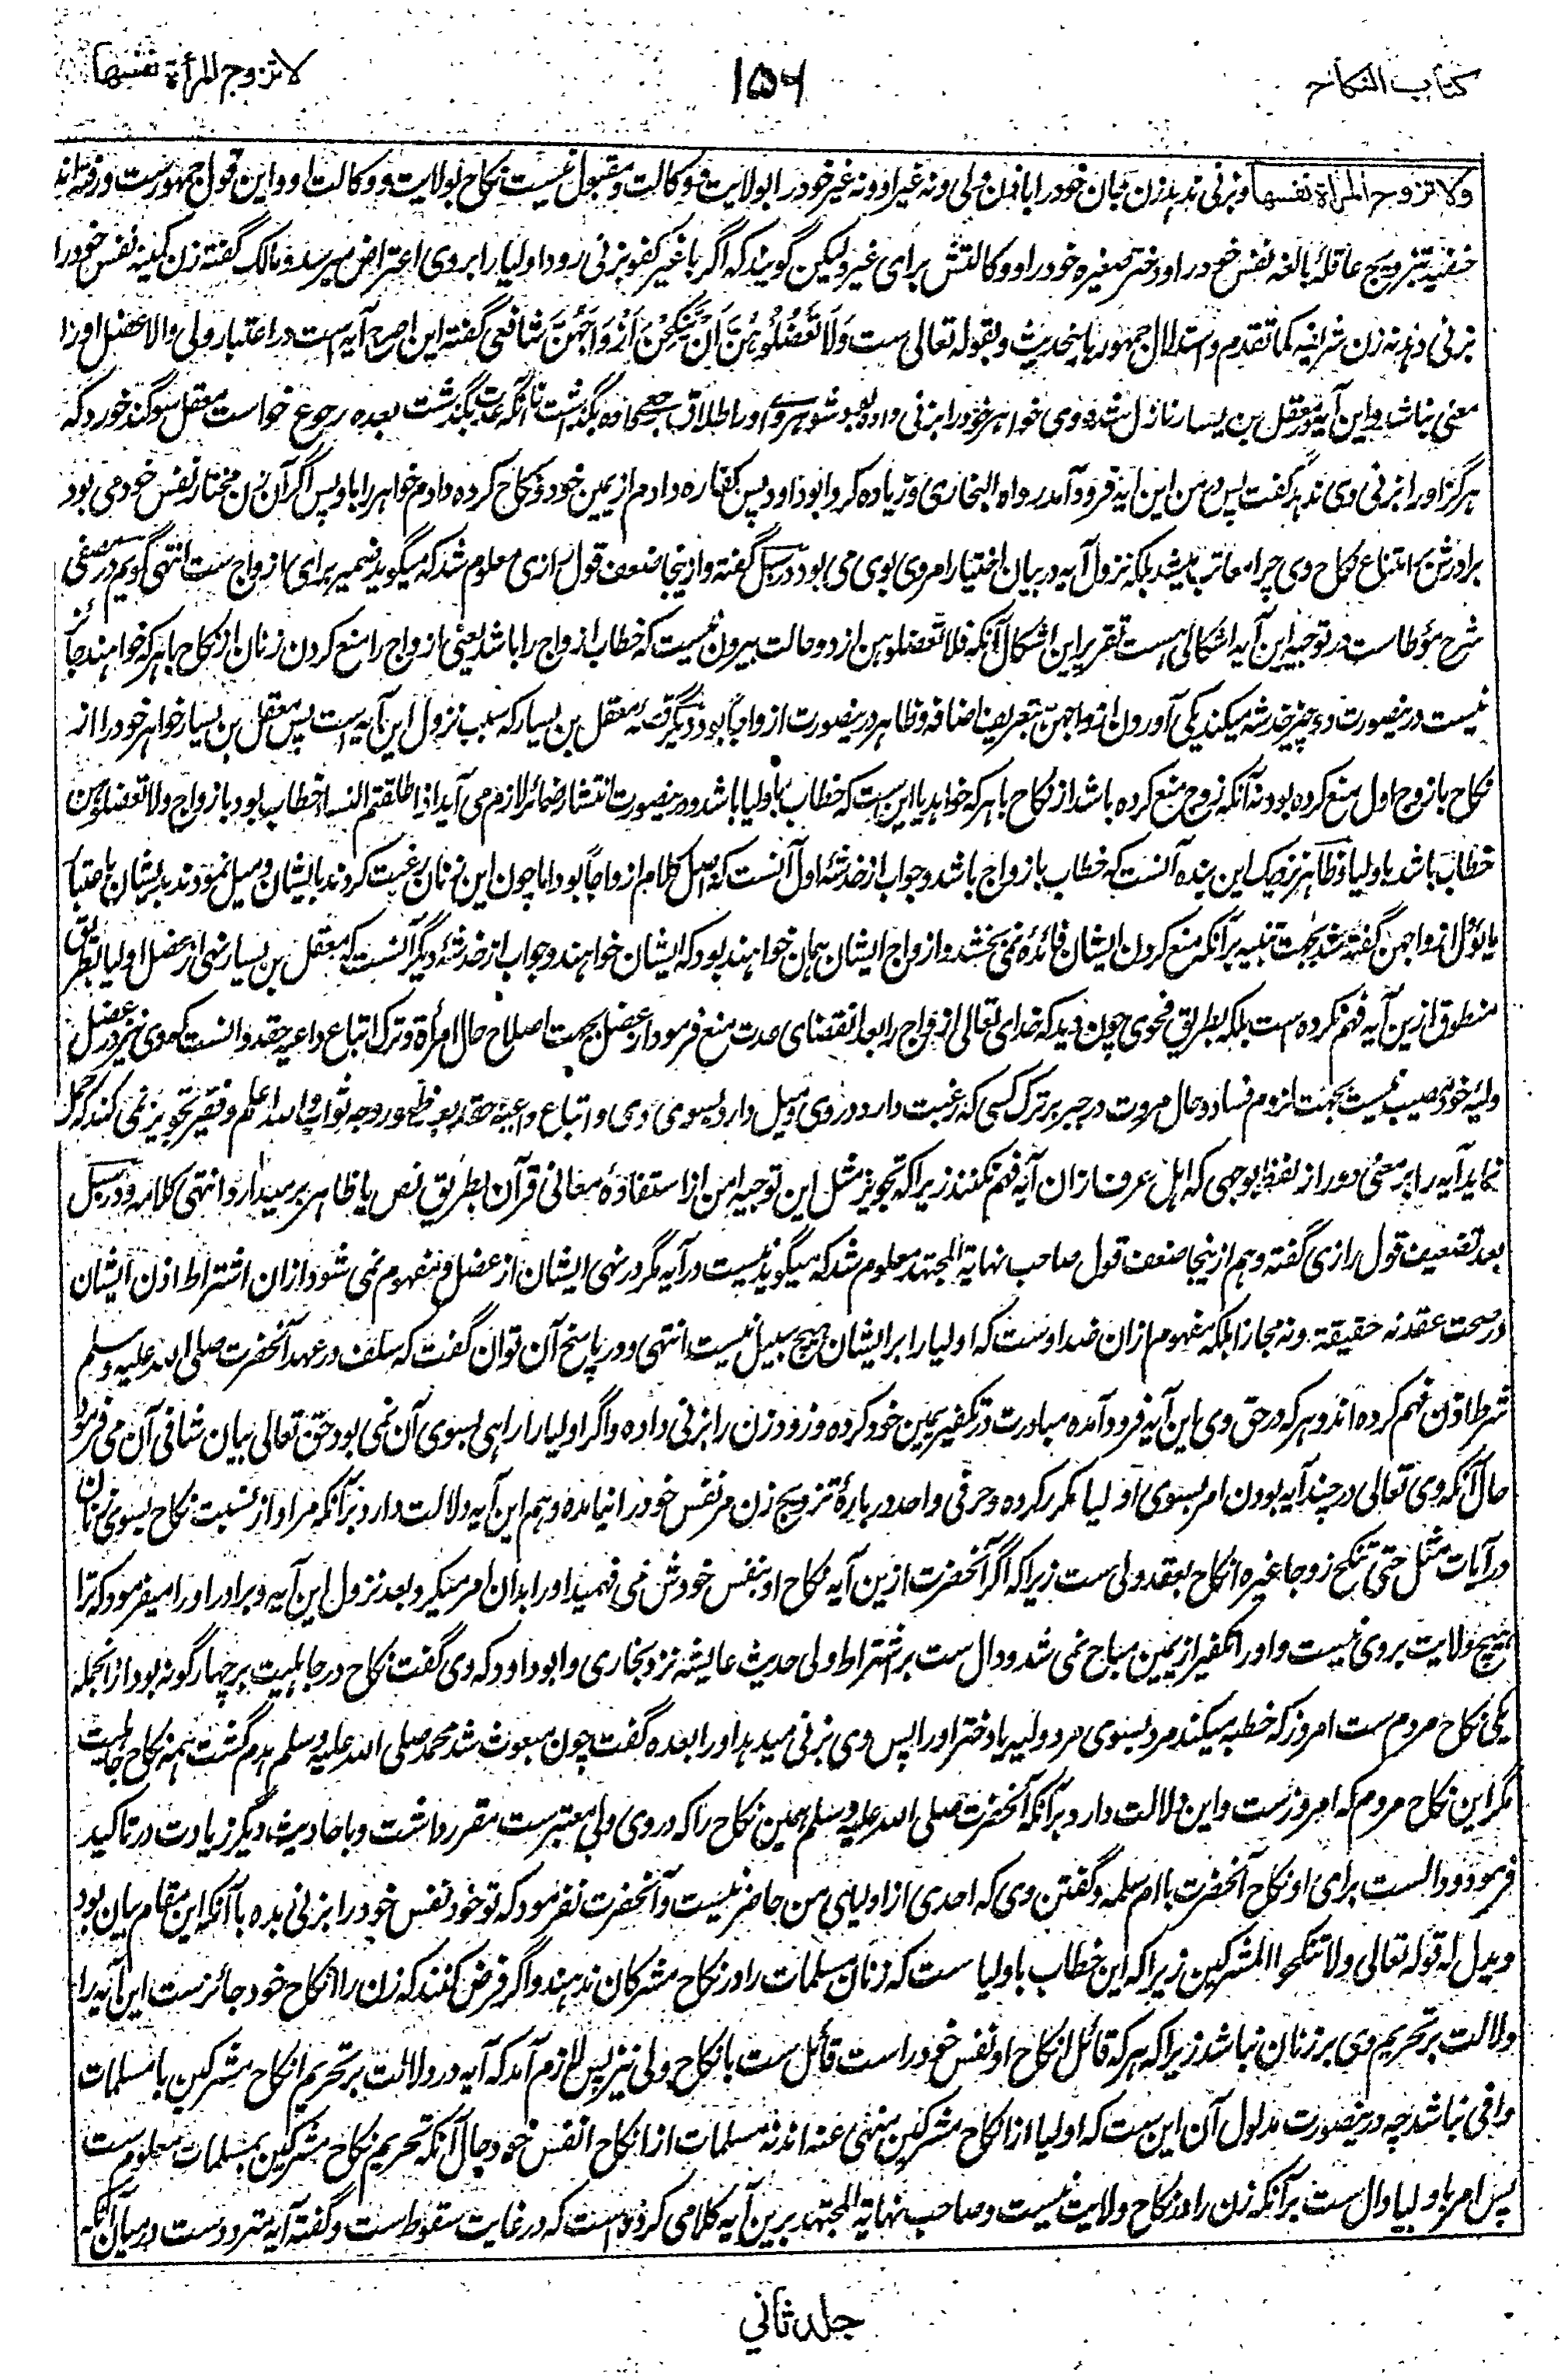 كتاب النكاح
۱۵۶
لا تزوج المرأة نفسها
ولا تزوج المرأة نفسها و بزنی ندهد زن جان خود را باذن ولی و نه غیر او و نه غیر خود را بولایت و وکالت و مقبول نیست نکاح بولایت و وکالت او و این قول جمهورست و رفته اند
حنفیه بتزویج عاقله بالغه نفس خود را و دختر صغیره خود را و وکالتش برای غیر ولیکن گویند که اگر با غیر کفو بزنی رود اولیا را بروی اعتراض میرسد و مالک گفته زن کمینه نفس خود را
بزنی دهد نه زن شرافیه کما تقدم و استدلال جمهور باینحدیث و بقوله تعالی ست وَلَا تَعْضُلُوهُنَّ اَنْ یَّنْکِحْنَ اَزْوَاجَهُنَّ شافعی گفته این اصرح آیه است در اعتبار ولی والا عضل او را
معنی نباشد و این آیه در معقل بن یسار نازل شده وی خواهر خود را بزنی داده بود شوهر وی او را طلاق رجعی داده بگذاشت تا آنکه عدت بگذشت بعده رجوع خواست معقل سوگند خورد که
هرگز او را بزنی وی ندهد گفت پس در من این آیه فرود آمد رواه البخاری و زیاده کرد ابو داود پس کفاره دادم از یمین خود و نکاح کرده دادم خواهر را باو پس اگر آن زن مختار نفس خود می بود
برادرش بامتناع نکاح وی چرا معاتب میشد بلکه نزول آیه در بیان اختیار امر وی بوی می بود در سبل گفته و از ینجا ضعف قول رازی معلوم شد که میگوید ضمیر برای ازواج ست انتهی گویم در مصفی
شرح مؤطاست در توجیه این آیه اشکالی هست تقریر این اشکال آنکه فلا تعضلوهن از دو حالت بیرون نیست که خطاب ازواج را باشد یعنی ازواج را منع کردن زنان از نکاح با هر که خواهند جائز
نیست در ینصورت دو چیز خدشه میکند یکی آوردن ازواجهن بتعریف اضافه و ظاهر در ینصورت ازواجاً بود دیگر قصه معقل بن یسار که سبب نزول این آیه است پس معقل بن یسار خواهر خود را از
نکاح با زوج اول منع کرده بود نه آنکه زوج منع کرده باشد از نکاح با هر که خواهد یا این ست که خطاب باولیا باشد و در ینصورت انتشار ضمائر لازم می آید اذا طلقتم النساء خطاب بود بازواج ولا تعضلوهن
خطاب باشد باولیا و ظاهر نزدیک این بنده آنست که خطاب بازواج باشد و جواب از خدشه اول آنست که اصل کلام ازواجاً بود اما چون این زنان رغبت کردند بایشان و میل نمودند بدیشان باعتبار
ما یؤل ازواجهن گفته شد بجهت تنبیه برآنکه منع کردن ایشان فائده نمی بخشد و ازواج ایشان همان خواهند بود که ایشان خواهند و جواب از خدشهٔ دیگر آنست که معقل بن یسار نهی از عضل اولیا بطریق
منطوق ازین آیه فهم نکرده است بلکه بطریق فحوی چون دید که خدای تعالی ازواج را بعد انقضای عدت منع فرمود از عضل بجهت اصلاح حال امرأة و ترک اتباع داعیه حقد دانست که وی نیز در عضل
ولیه خود مصیب نیست بجهت لزوم فساد و حال مروت در جبر بر ترک کسی که رغبت دارد در وی و میل دارد بسوی وی و اتباع داعیه حقد بعد ظهور وجه ثواب والله اعلم و فقیر تجویز نمی کند که حمل
نماید آیه را بر معنی دور از لفظ بوجهی که اهل عرف از ان آیه فهم نکنند زیرا که تجویز مثل این توجیه امن از استفادهٔ معانی قرآن بطریق نص یا ظاهر بر میدارد انتهی کلامه و در سبل
بعد تضعیف قول رازی گفته و هم از ینجا ضعف قول صاحب نهایة المجتهد معلوم شد که میگوید نیست در آیه مگر در نهی ایشان از عضل و مفهوم نمی شود از ان اشتراط اذن ایشان
در صحت عقد نه حقیقة و نه مجازا بلکه مفهوم از ان ضد اوست که اولیا را بر ایشان هیچ سبیل نیست انتهی و در پاسخ آن توان گفت که سلف در عهد آنحضرت صلی الله علیه وسلم
شرط اذن فهم کرده اند و هر که در حق وی این آیه فرود آمده مبادرت در تکفیر یمین خود کرده و زود زن را بزنی داده و اگر اولیا را راهی بسوی آن نمی بود حق تعالی بیان شافی آن می فرمود
حال آنکه وی تعالی در چند آیه بودن امر بسوی اولیا مکرر کرده و حرفی واحد در بارهٔ تزویج زن مر نفس خود را نیامده و هم این آیه دلالت دارد برآنکه مراد از نسبت نکاح بسوی زنان
در آیات مثل حتی تنکح زوجا غیره انکاح بعقد ولی ست زیرا که اگر آنحضرت ازین آیه نکاح او بنفس خودش می فهمید او را بدان امر میکرد بعد نزول این آیه و برادر او را میفرمود که ترا
هیچ ولایت بروی نیست و او را تکفیر از یمین مباح نمی شد و دال ست بر اشتراط ولی حدیث عایشه نزد بخاری و ابو داود که وی گفت نکاح در جاهلیت بر چهار گونه بود از انجمله
یکی نکاح مردم ست امروز که خطبه میکند مرد بسوی مرد ولیه یا دختر او را پس وی بزنی میدهد او را بعده گفت چون مبعوث شد محمد صلی الله علیه وسلم هدم گشت همه نکاح جاهلیت
مگر این نکاح مردم که امروزست و این دلالت دارد برآنکه آنحضرت صلی الله علیه وسلم همین نکاح را که در وی ولی معتبرست مقرر داشت و باحادیث دیگر زیادت در تاکید
فرمود و دالست برای او نکاح آنحضرت با ام سلمه و گفتن وی که احدی از اولیای من حاضر نیست و آنحضرت نفرمود که تو خود نفس خود را بزنی بده با آنکه این مقام بیان بود
و یدل له قوله تعالی ولا تنکحوا المشرکین زیرا که این خطاب باولیا ست که زنان مسلمات را در نکاح مشرکان ندهند و اگر فرض کنند که زن را انکاح خود جائزست این آیه را
دلالت بر تحریم وی بر زنان نباشد زیرا که هر که قائل انکاح او نفس خود راست قائل ست بانکاح ولی نیز پس لازم آمد که آیه در دلالت بر تحریم انکاح مشرکین با مسلمات
وافی نباشد چه در ینصورت مدلول آن این ست که اولیا از انکاح مشرکین منهی عنه اند نه مسلمات از انکاح انفس خود حال آنکه تحریم نکاح مشرکین بمسلمات معلوم ست
پس امر باولیا دال ست برآنکه زن را در نکاح ولایت نیست و صاحب نهایة المجتهد برین آیه کلامی کرده است که در غایت سقوط ست و گفته آیه متردد ست در میان آنکه
جلد ثانی